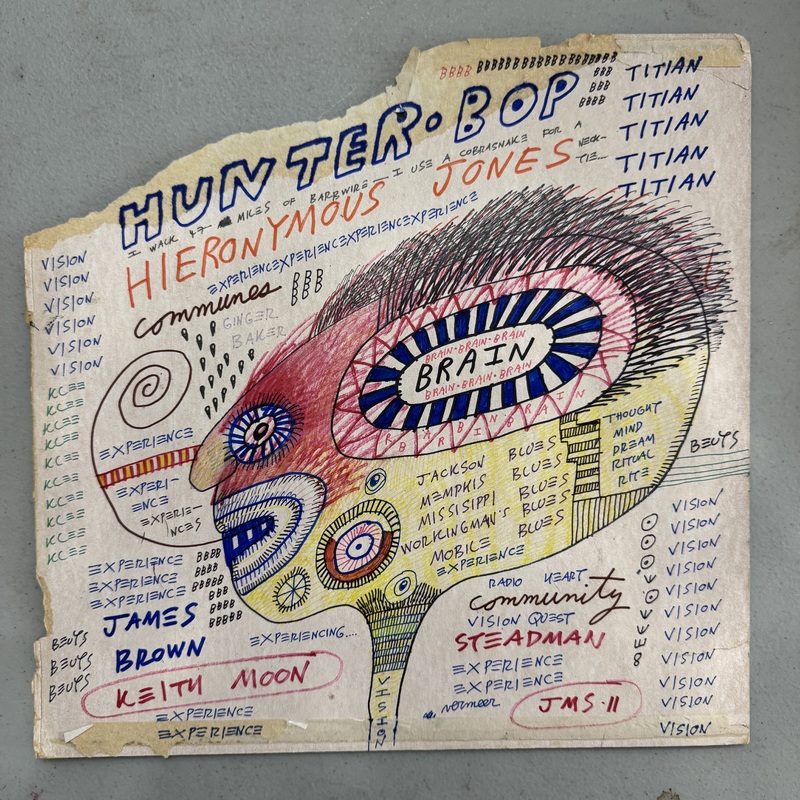 BBBB BBBBBBBBBBBBBBBBBB
BBB
BBB
BBBB
TITIAN
TITIAN
TITIAN
TITIAN
TITIAN
HUNTER·BOP
I WALK 47 MILES OF BARBWIRE — I USE A COBRASNAKE FOR A NECK-
TIE...
HIERONYMOUS JONES
EXPERIENCEEXPERIENCEEXPERIENCEEXPERIENCE
VISION
VISION
VISION
VISION
VISION
VISION
communes
BBB
BBB
BBB
GINGER
BAKER
BRAIN·BRAIN·BRAIN
BRAIN
BRAIN·BRAIN·BRAIN
BRAIN BRAIN BRAIN
EXPERIENCE
EXPERI-
ENCE
EXPERIE-
NCES
JACKSON BLUES
MEMPHIS BLUES
MISSISIPPI BLUES
WORKINGMAN'S BLUES
MOBILE BLUES
EXPERIENCE
THOUGHT
MIND
DREAM
RITUAL
RITE
BEUYS
EXPERIENCE BBBB
EXPERIENCE BBBBB
EXPERIENCE BBBB
JAMES
BROWN
EXPERIENCING....
BEUYS
BEUYS
BEUYS
KEITH MOON
EXPERIENCE
EXPERIENCE
VISION
RADIO HEART
community
VISION QUEST
STEADMAN
EXPERIENCE
EXPERIENCE
vermeer
JMS·11
VISION
VISION
VISION
VISION
VISION
VISION
VISION
VISION
VISION
VISION